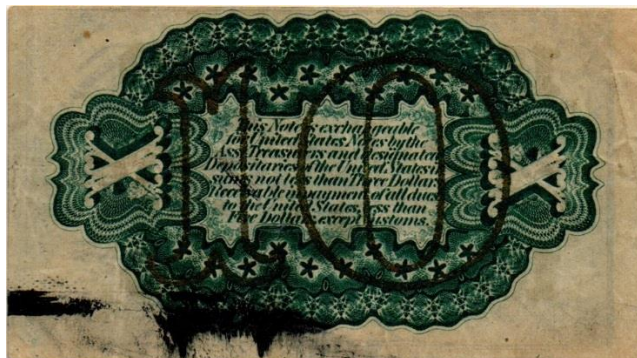 10
X
X
This Note is exchangeable
for United States Notes by the
Asst. Treasurers and designated
Depositaries of the United States in
sums not less than Three Dollars
Receivable in payment of all dues
to the United States, less than
Five Dollars, except Customs.